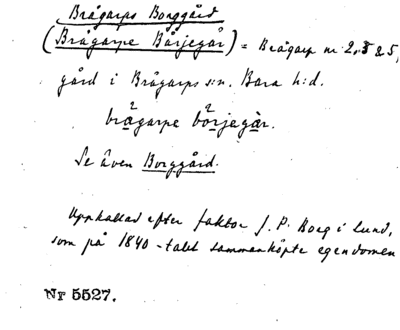 Brågarps Borggård
(Brågarpe Bårjegår) = Brågarp nr 2, 3 & 5,
gård i Brågarps s:n. Bara h:d.
brågarpe bòrjegàr.
Se även Borggård.
Uppkallad efter faktor J. P. Borg i Lund,
som på 1840-talet sammanköpte egendomen
Nr 5527.